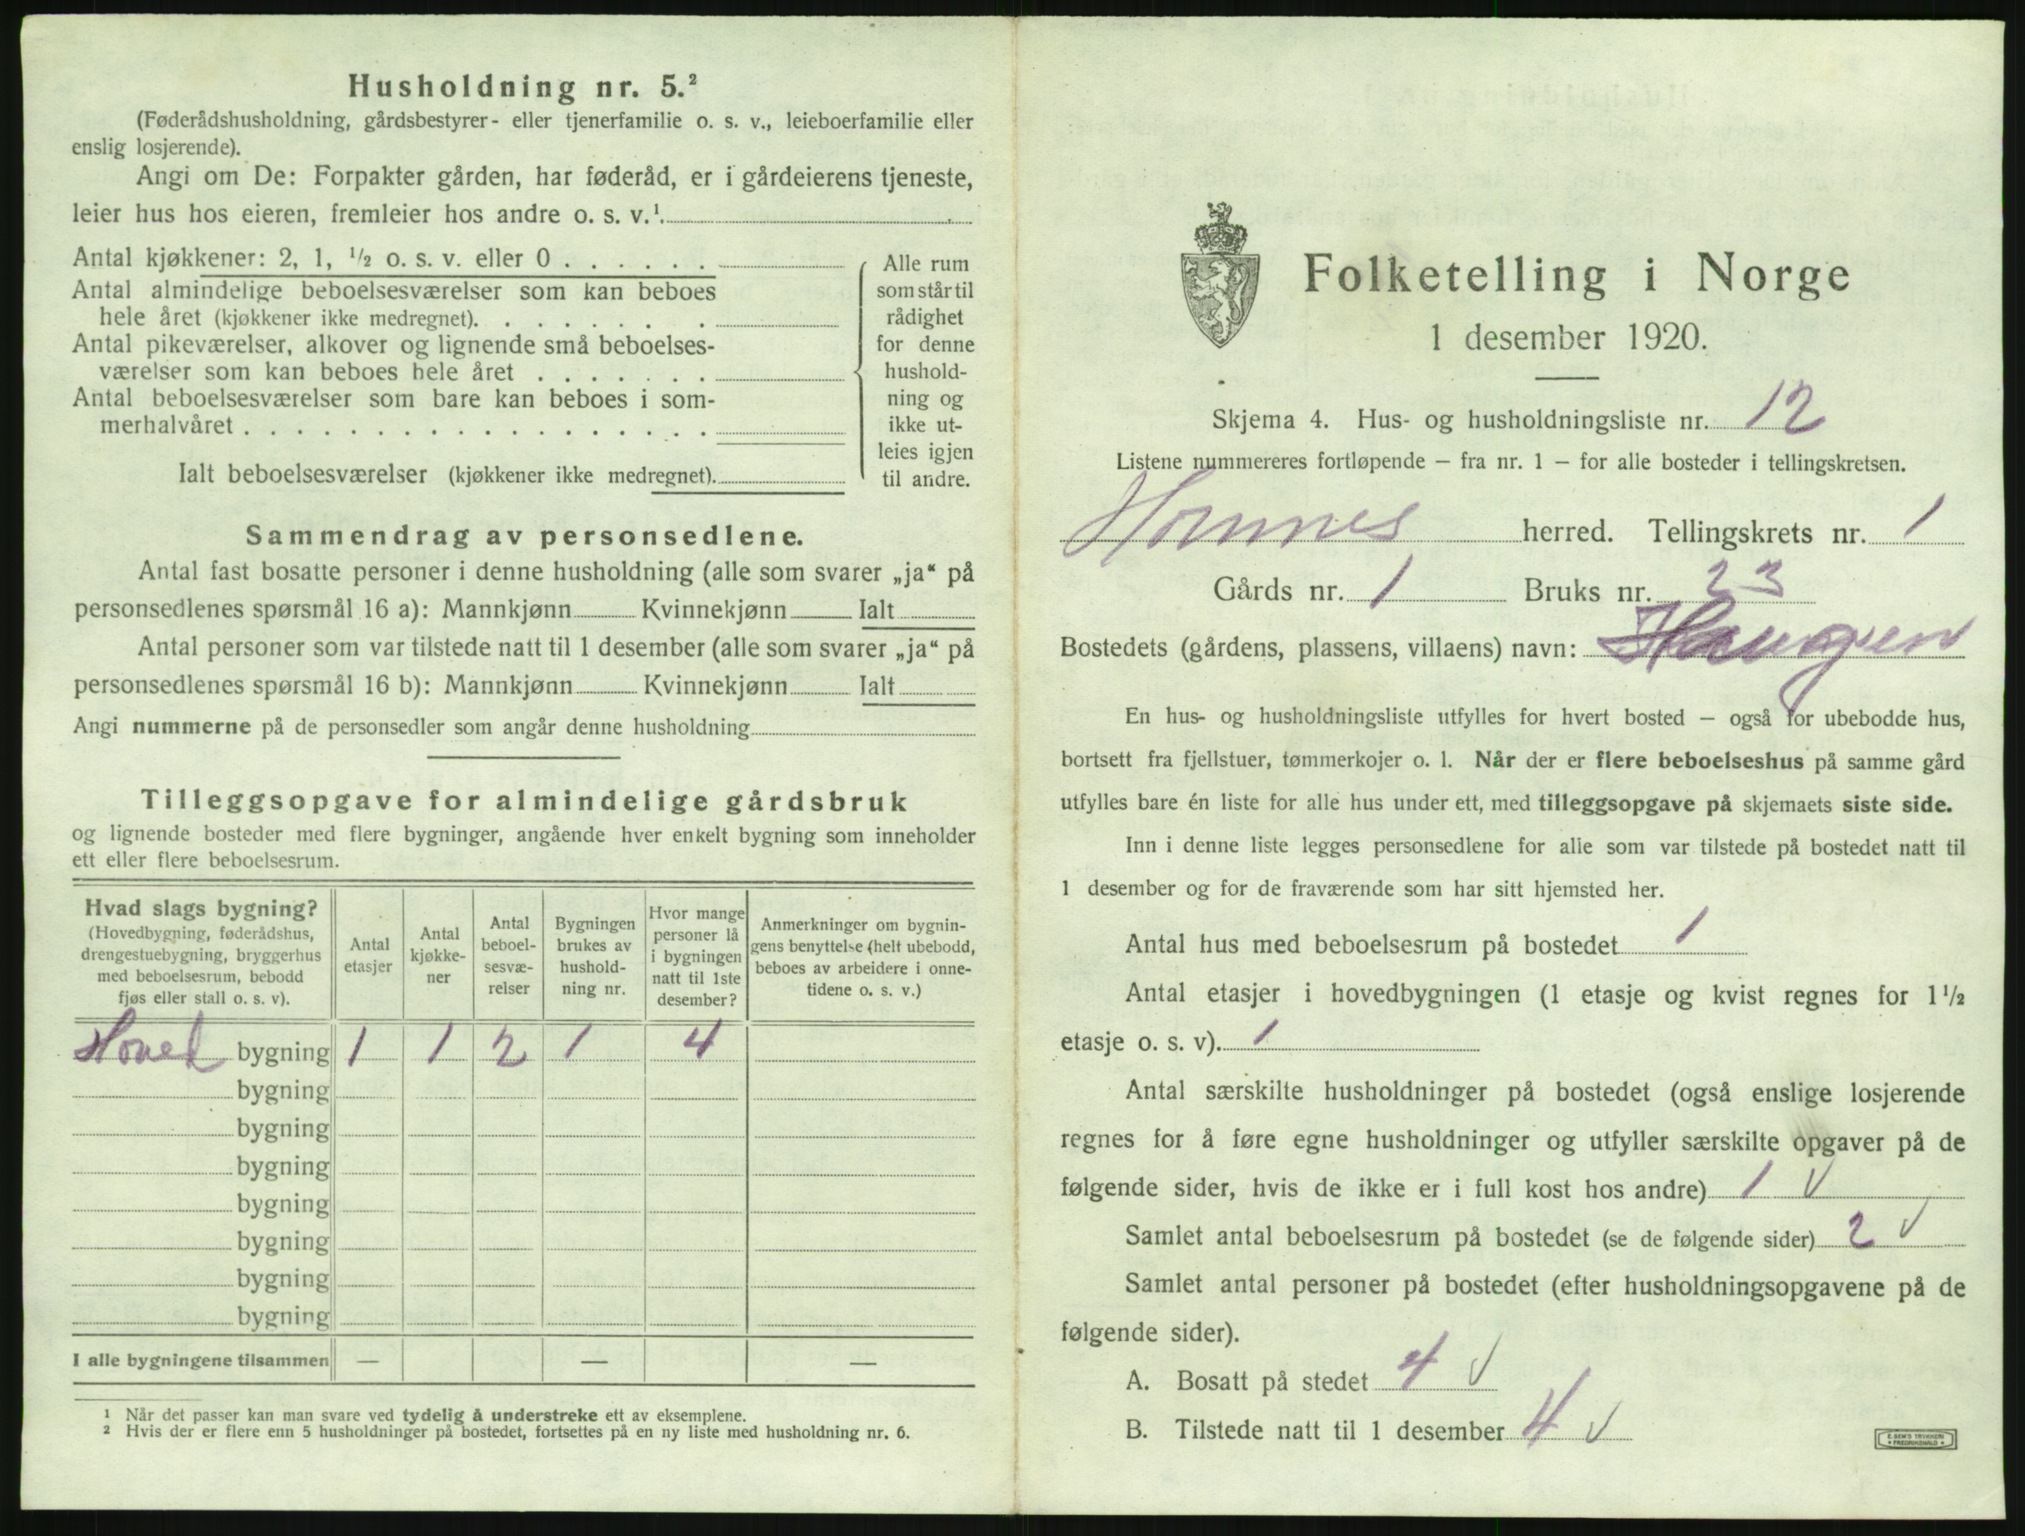 Husholdning nr. 5.²
(Føderådshusholdning, gårdsbestyrer- eller tjenerfamilie o. s. v., leieboerfamilie eller
enslig losjerende).
Angi om De: Forpakter gården, har føderåd, er i gårdeierens tjeneste,
leier hus hos eieren, fremleier hos andre o. s. v.¹
Antal kjøkkener: 2, 1, ½ o. s. v. eller 0
Antal almindelige beboelsesværelser som kan beboes
hele året (kjøkkener ikke medregnet).
Antal pikeværelser, alkover og lignende små beboelses-
værelser som kan beboes hele året
Antal beboelsesværelser som bare kan beboes i som-
merhalvåret
Ialt beboelsesværelser (kjøkkener ikke medregnet).
Alle rum
som står til
rådighet
for denne
hushold-
ning og
ikke ut-
leies igjen
til andre.
Sammendrag av personsedlene.
Antal fast bosatte personer i denne husholdning (alle som svarer „ja“ på
personsedlenes spørsmål 16 a): Mannkjønn Kvinnekjønn Ialt
Antal personer som var tilstede natt til 1 desember (alle som svarer „ja“ på
personsedlenes spørsmål 16 b): Mannkjønn Kvinnekjønn Ialt
Angi nummerne på de personsedler som angår denne husholdning
Tilleggsopgave for almindelige gårdsbruk
og lignende bosteder med flere bygninger, angående hver enkelt bygning som inneholder
ett eller flere beboelsesrum.
Hvad slags bygning?
(Hovedbygning, føderådshus,
drengestuebygning, bryggerhus
med beboelsesrum, bebodd
fjøs eller stall o. s. v).
Antal
etasjer
Antal
kjøkke-
ner
Antal
beboel-
sesvæ-
relser
Bygningen
brukes av
hushold-
ning nr.
Hvor mange
personer lå
i bygningen
natt til 1ste
desember?
Anmerkninger om bygnin-
gens benyttelse (helt ubebodd,
beboes av arbeidere i onne-
tidene o. s. v.)
Hoved bygning 1 1 2 1 4
bygning
bygning
bygning
bygning
bygning
bygning
bygning
I alle bygningene tilsammen — — —
¹ Når det passer kan man svare ved tydelig å understreke ett av eksemplene.
² Hvis der er flere enn 5 husholdninger på bostedet, fortsettes på en ny liste med husholdning nr. 6.
Folketelling i Norge
1 desember 1920.
Skjema 4. Hus- og husholdningsliste nr. 12
Listene nummereres fortløpende – fra nr. 1 – for alle bosteder i tellingskretsen.
Hornnes herred. Tellingskrets nr. 1
Gårds nr. 1 Bruks nr. 23
Bostedets (gårdens, plassens, villaens) navn: Haugen
En hus- og husholdningsliste utfylles for hvert bosted – også for ubebodde hus,
bortsett fra fjellstuer, tømmerkojer o. l. Når der er flere beboelseshus på samme gård
utfylles bare én liste for alle hus under ett, med tilleggsopgave på skjemaets siste side.
Inn i denne liste legges personsedlene for alle som var tilstede på bostedet natt til
1 desember og for de fraværende som har sitt hjemsted her.
Antal hus med beboelsesrum på bostedet 1
Antal etasjer i hovedbygningen (1 etasje og kvist regnes for 1½
etasje o. s. v). 1
Antal særskilte husholdninger på bostedet (også enslige losjerende
regnes for å føre egne husholdninger og utfyller særskilte opgaver på de
følgende sider, hvis de ikke er i full kost hos andre) 1 √
Samlet antal beboelsesrum på bostedet (se de følgende sider) 2 √
Samlet antal personer på bostedet (efter husholdningsopgavene på de
følgende sider).
A. Bosatt på stedet 4 √
B. Tilstede natt til 1 desember 4 √
E. SEM'S TRYKKERI
FREDRIKSHALD